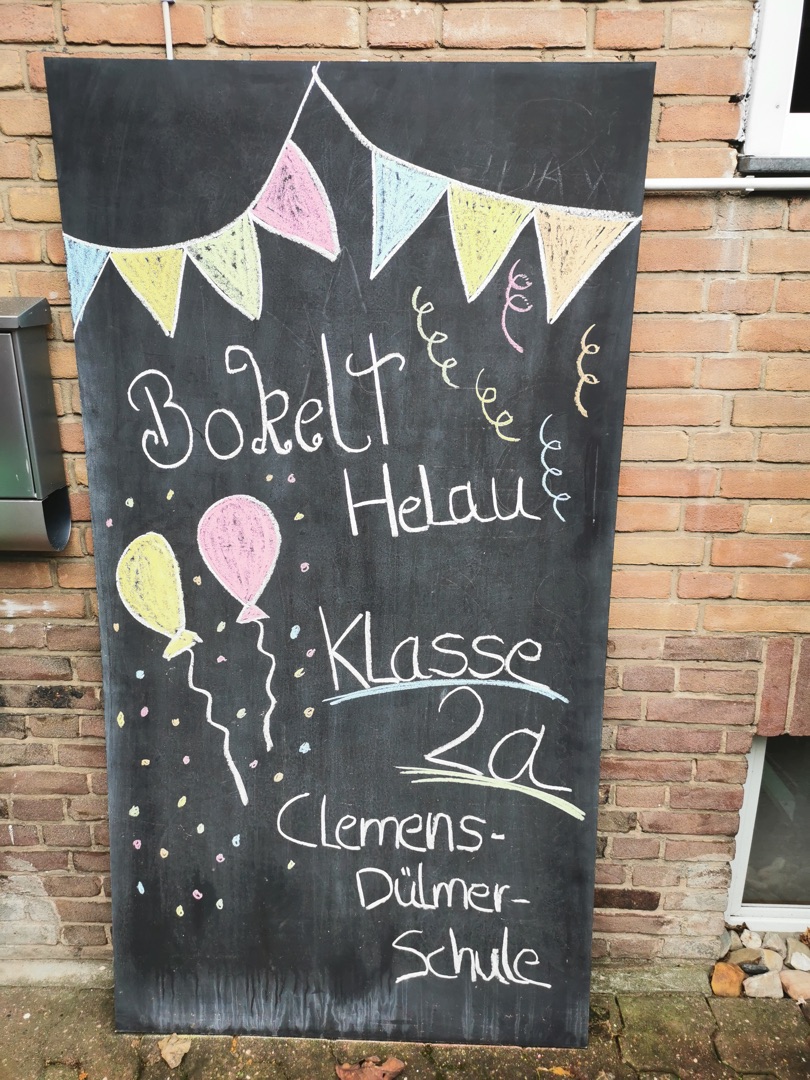 Bokelt
Helau
Klasse
2a
Clemens-
Dülmer-
Schule